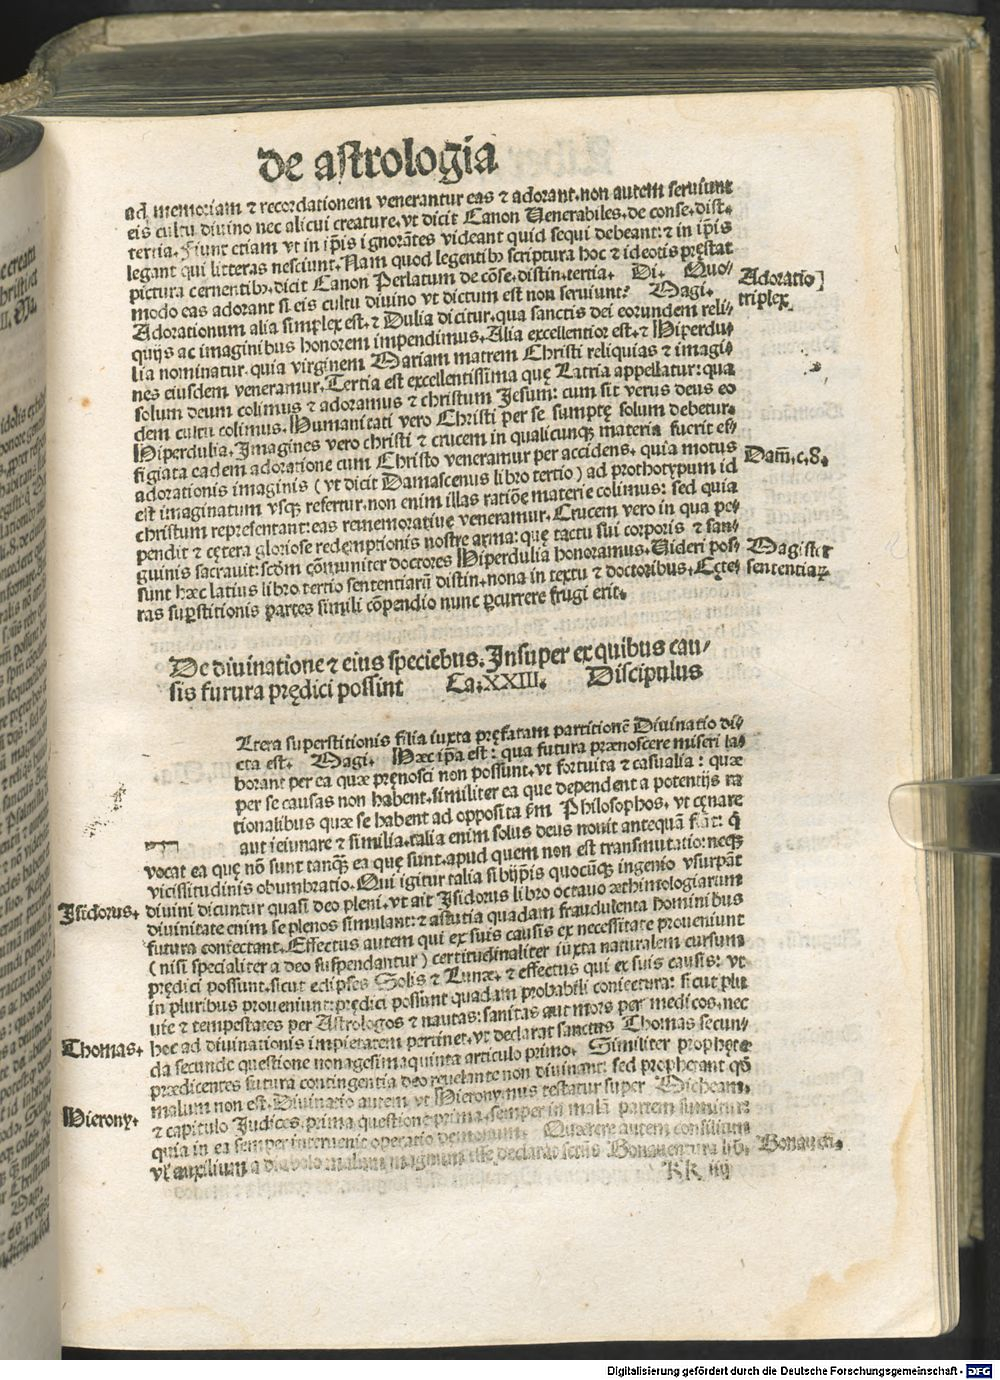 de astrologia
ad memoriam ⁊ recordationem venerantur eas ⁊ adorant. non autem seruiunt
eis cultu diuino nec alicui creature. vt dicit Canon Venerabiles. de conse. dist.
tertia. Fiunt etiam vt in ip̄is ignorātes videant quid sequi debeant: ⁊ in ip̄is
legant qui litteras nesciunt. Nam quod legentibꝰ scriptura hoc ⁊ ideotis pręstat
pictura cernentibꝰ. dicit Canon Perlatum de cōse. distin. tertia. Di. Quo/
modo eas adorant si eis cultu diuino vt dictum est non seruiunt? Magi.
Adoratio
triplex
Adorationum alia simplex est. ⁊ Dulia dicitur. qua sanctis dei eorundem reli/
quijs ac imaginibus honorem impendimus. Alia excellentior est. ⁊ Hiperdu/
lia nominatur. quia virginem Mariam matrem Christi reliquias ⁊ imagi/
nes eiusdem veneramur. Tertia est excellentissima quę Latria appellatur: qua
solum deum colimus ⁊ adoramus ⁊ christum Jesum: cum sit verus deus eo
dem cultu colimus. Humanitati vero Christi per se sumptę solum debetur
Hiperdulia. Imagines vero christi ⁊ crucem in qualicunqꝫ materia fuerit ef/
figiata eadem adoratione cum Christo veneramur per accidens. quia motus
Dam̄. c. 8.
adorationis imaginis (vt dicit Damascenus libro tertio) ad prothotypum id
est imaginatum vsqꝫ refertur. non enim illas ratiōe materie colimus: sed quia
christum representant: eas rememoratiue veneramur. Crucem vero in qua pe/
pendit ⁊ cętera gloriose redemptionis nostre arma: quę tactu sui corporis ⁊ san/
guinis sacrauit: scd̄m cōmuniter doctores Hiperdulia honoramus. Videri pos/
Magister
sunt hæc latius libro tertio sententiarū distin. nona in textu ⁊ doctoribus. Cęte/
sententiaꝝ
ras suꝑstitionis partes simili cōpendio nunc ꝑcurrere frugi erit.
De diuinatione ⁊ eius speciebus. Insuper ex quibus cau/
sis futura prędici possint Ca. XXIII. Discipulus
Ltera superstitionis filia iuxta pręfatam partitionē Diuinatio di/
cta est. Magi. Hæc ip̄a est: qua futura prænoscere miseri la/
borant per ea quæ pręnosci non possunt. vt fortuita ⁊ casualia: quæ
per se causas non habent. similiter ea que dependent a potentijs ra
tionalibus quæ se habent ad opposita s̄m Philosophos. vt cęnare
aut ieiunare ⁊ similia. talia enim solus deus nouit antequā fiāt: q̄
vocat ea quę nō sunt tanqꝫ ea quę sunt. apud quem non est transmutatio: neqꝫ
vicissitudinis obumbratio. Qui igitur talia sibijp̄is quocūqꝫ ingenio vsurpāt
Isidorus.
diuini dicuntur quasi deo pleni. vt ait Isidorus libro octauo æthimologiarum
diuinitate enim se plenos simulant: ⁊ astutia quadam fraudulenta hominibus
futura coniectant. Effectus autem qui ex suis causis ex necessitate proueniunt
(nisi specialiter a deo suspendantur) certitudinaliter iuxta naturalem cursum
prędici possunt. sicut eclipses Solis ⁊ Lunæ. ⁊ effectus qui ex suis causis: vt
in pluribus proueniunt: prędici possunt quadam probabili coniectura: sicut plu
uie ⁊ tempestates per Astrologos ⁊ nautas: sanitas aut mors per medicos. nec
Thomas.
hoc ad diuinationis impietatem pertinet. vt declarat sanctus Thomas secun/
da secunde questione nonagesimaquinta articulo primo. Similiter prophętę
prædicentes futura contingentia deo reuelante non diuinant: sed prophetant qd̄
Hierony.
malum non est. Diuinatio autem vt Hieronymus testatur super Micheam.
⁊ capitulo Judices. prima questione prima. semper in malā partem sumitur
quia in ea semper interuenit operatio demonum. Quærere autem consilium
Bonauen̄.
vel auxilium a diabolo malum magnum est. declarat sctūs Bonauentura lib.
KK iiij
Digitalisierung gefördert durch die Deutsche Forschungsgemeinschaft - DFG